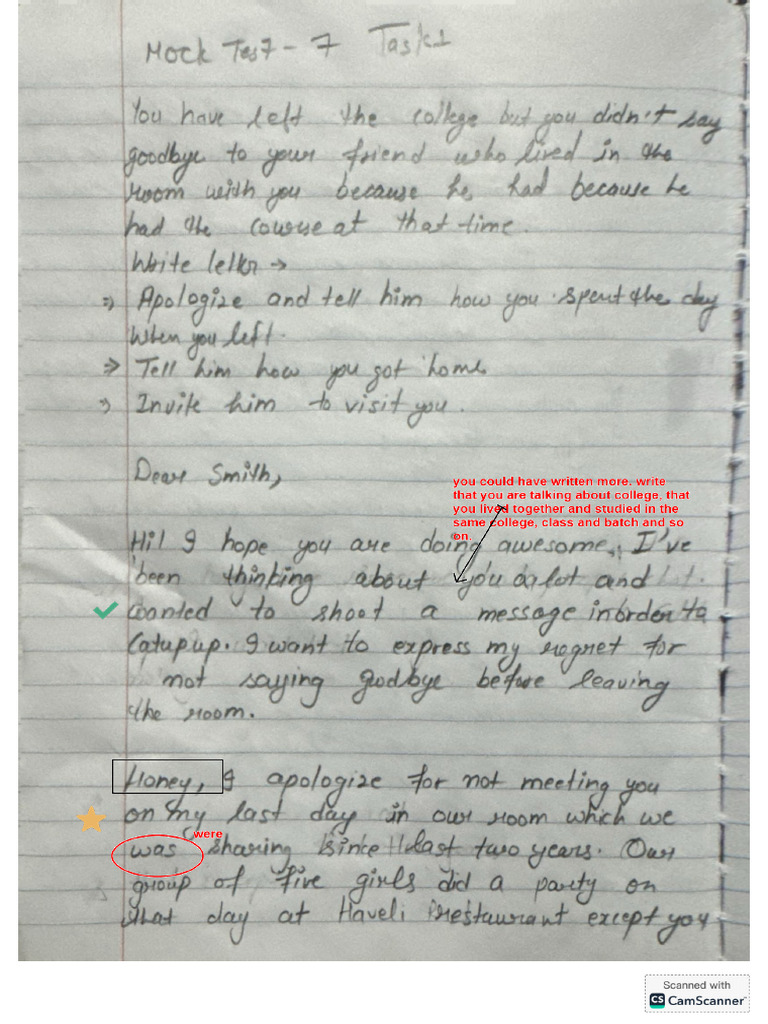 Mock Test - 7 Task 1
You have left the college but you didn't say
goodbye to your friend who lived in the
room with you because he had because he
had the course at that time.
Write letter →
⇒ Apologize and tell him how you spent the day
when you left.
⇒ Tell him how you got home
⇒ Invite him to visit you.
Dear Smith,
you could have written more. write
that you are talking about college, that
you lived together and studied in the
same college, class and batch and so
on.
Hi! I hope you are doing awesome, I've
been thinking about you alot and
wanted to shoot a message inorder to
Catupup. I want to express my regret for
not saying goodbye before leaving
the room.
Honey, I apologize for not meeting you
on my last day in our room which we
were
was sharing since last two years. Our
group of five girls did a party on
that day at Haveli restaurant except you
Scanned with
CS CamScanner